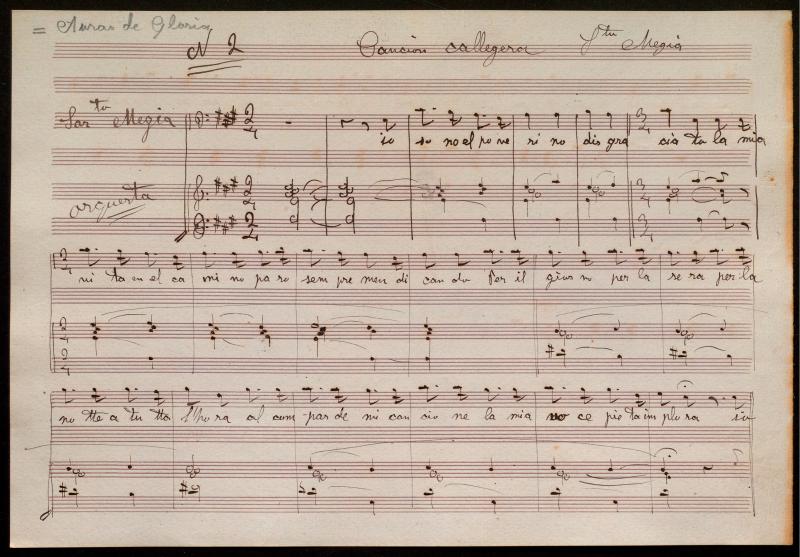 = Auras de Gloria
N 2 Cancion callegera Sta Megia
Sarta Megia
2/4
io so no el po ve ri no dis gra
3/4
cia ta la mia
orquesta
2/4 vi ta en el ca mi no pa ro sem pre men di can do Per il gior no per la se ra per la
no tte a tu tta l'ho ra al com par de mi can cio ne la mia vo ce pie ta im plo ra sin